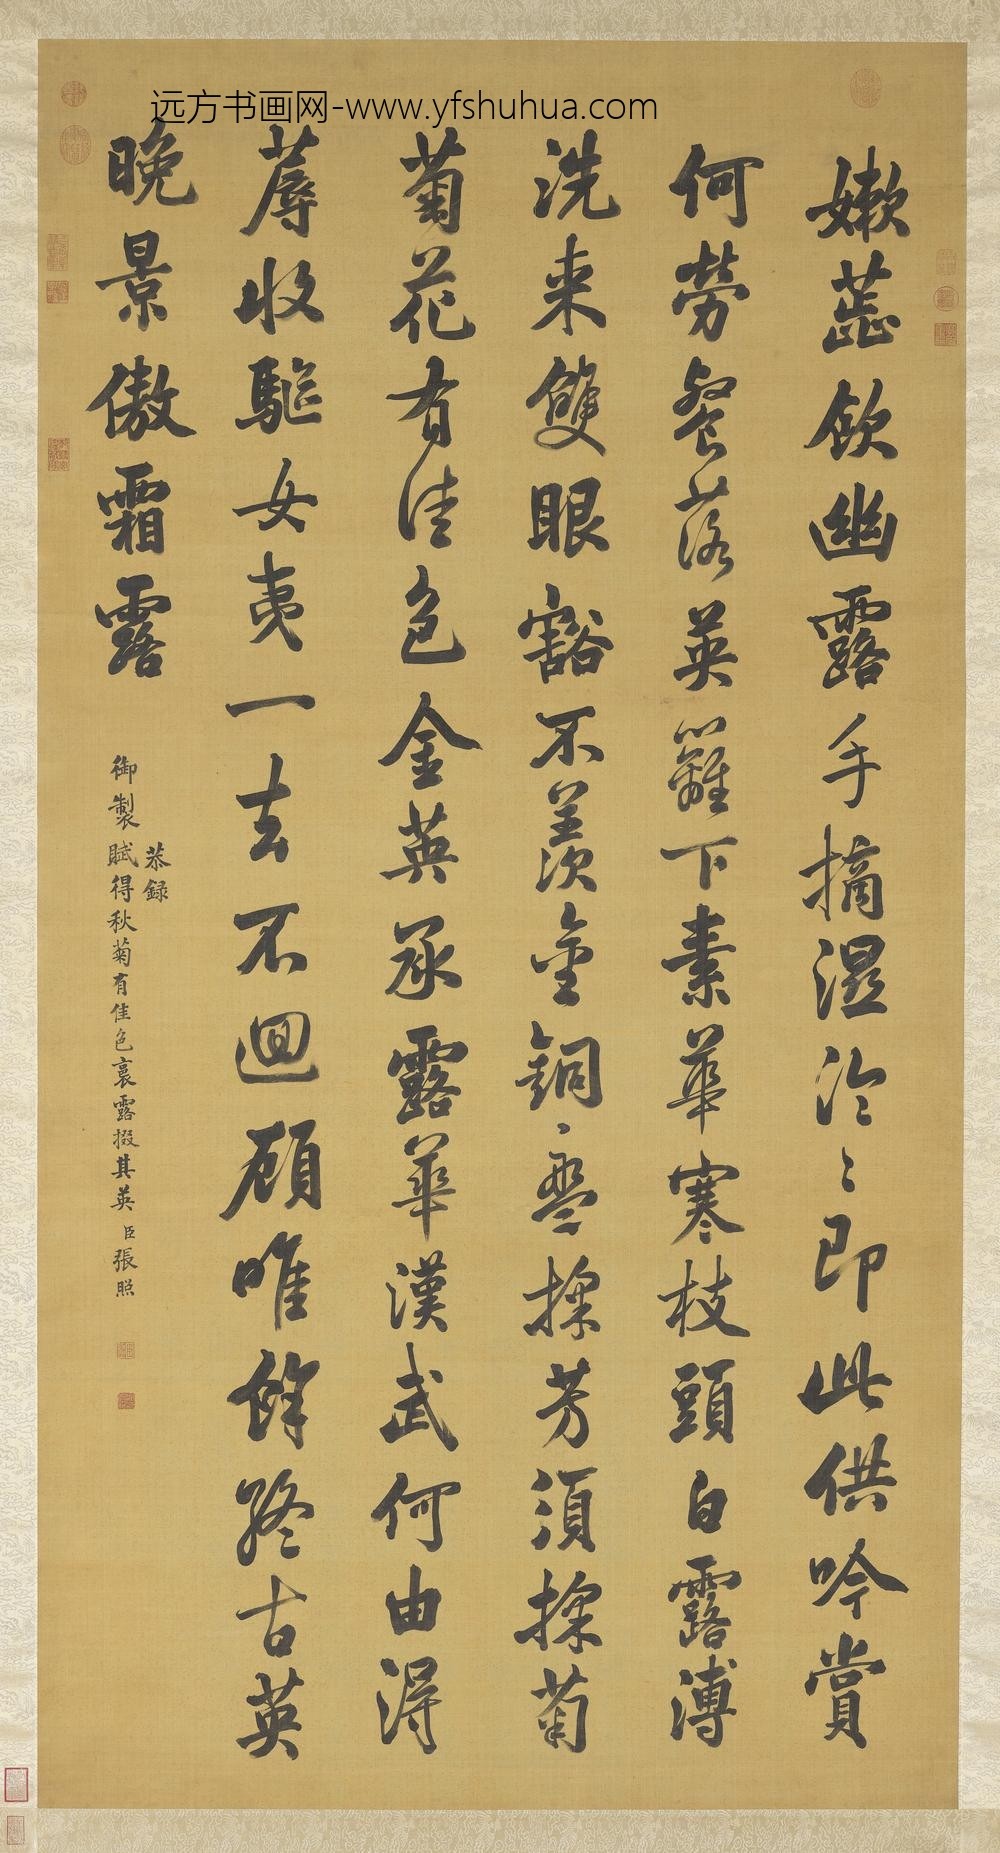 远方书画网-www.yfshuhua.com
嫩蕋飲幽露手摘濕泠〻即此供吟賞
何勞餐落英籬下素華寒枝頭白露漙
洗来雙眼豁不羨金銅〻盤採芳須採菊
菊花有佳色金英承露華漢武何由得
蓐收驅女夷一去不迴顾唯餘終古英
晚景傲霜露
恭錄
御製賦得秋菊有佳色裛露掇其英 臣張照